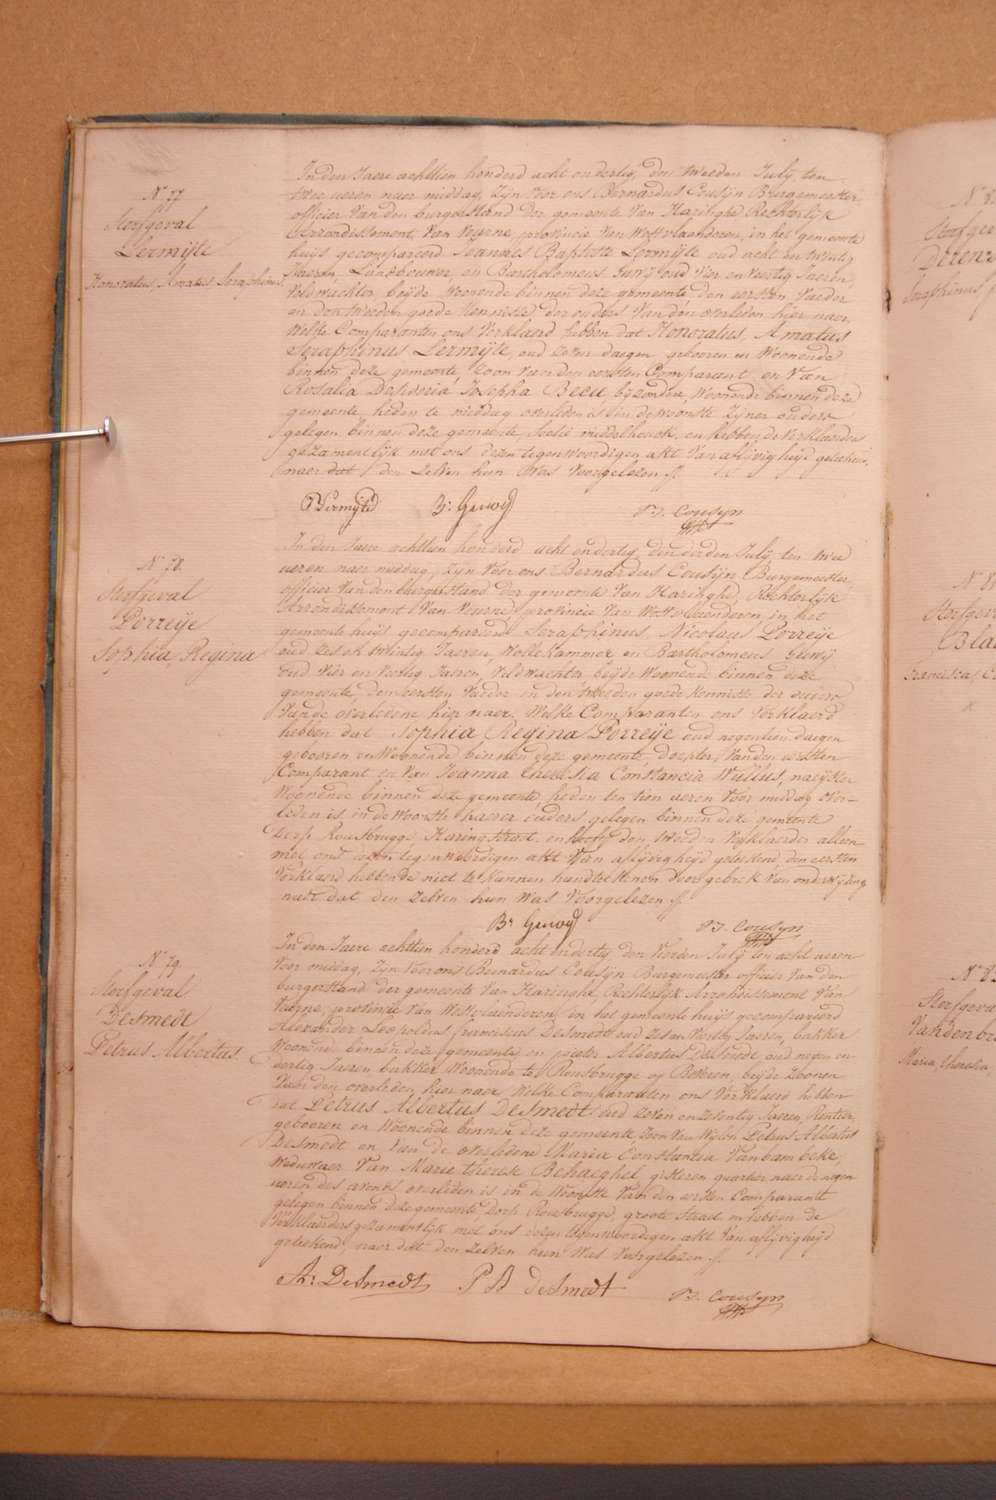 N° 77
Sterfgeval
Lermijte
Honoratus Amatus Seraphinus
In den Jaere achttien honderd acht en dertig, den tweeden July, ten
twee ueren naer middag, Zijn voor ons Bernardus Cousijn Burgemeester
officier van den burgerstand der gemeente van Haringhe Rechterlyk
Arrondissement van Veurne, provincie van Westvlaenderen, in het gemeente
huijs gecompareerd Joannes Baptiste Lermijte oud acht en twintig
Jaeren, Landbouwer en Bartholomeus Gewij oud vier en veertig Jaeren
Veldwachter, beijde Woonende binnen deze gemeente den eersten Vaeder
en den tweeden goede kennisse der ouders van den overleden hier naer,
Welke Comparanten ons Verklaerd hebben dat Honoratus, Amatus
Seraphinus Lermijte, oud zeven daegen gebooren en Woonende
binnen deze gemeente zoon van den eersten Comparant en Van
Rosalia Desideria Josepha Beeu, bijzondere, Woonende binnen deze
gemeente, heden te middag overleden is in de Woonste Zijner ouders
gelegen binnen deze gemeente, Sectie middelhoek, en hebben de Verklaerders
gezamentlijk met ons dezen tegenwoordigen akt van aflijvigheijd geteekend,
naer dat den Zelven hun Was Voorgelezen ./.
Lermijte B: Gewij B. J. Cousyn
N° 78.
Sterfgeval
Porreije
Sophia, Regina
In den Jaere achttien honderd acht en dertig, den derden July, ten twee
ueren naer middag, Zijn Voor ons Bernardus Cousijn Burgemeester
officier Van den burgerstand der gemeente Van Haringhe, Rechterlyk
Arrondissement Van Veurne, provincie Van Westvlaenderen, in het
gemeente huijs gecompareerd Seraphinus, Nicolaus Porreije
oud Zes en twintig Jaeren, Wollekammer en Bartholomeus Gewij
oud vier en veertig Jaeren, Veldwachter, beijde Woonende binnen deze
gemeente, den eersten Vaeder en den tweeden goede kennisse der ouders
Van de overledene hier naer. Welke Comparanten ons Verklaerd
hebben dat Sophia Regina Porreije oud negentien daegen
gebooren en Woonende binnen deze gemeente, dogter Van den eersten
Comparant en Van Joanna Constancia Wullus, naeijster
Woonende binnen deze gemeente, heden ten tien ueren Voor middag over-
leden is in de Woonste haerer ouders gelegen binnen deze gemeente
Dorp Rousbrugge Haringstraet en heeft den tweeden Verklaerder alleen
met ons dezen tegenwoordigen akt Van aflijvigheijd geteekend, den eersten
Verklaerd hebbende niet te kunnen handteekenen door gebrek Van onderwijzing
naer dat den Zelven hun Was Voorgelezen ./.
B: Gewij B. J. Cousyn
N° 79
Sterfgeval
DeSmedt
Petrus Albertus
In den Jaere achttien honderd acht en dertig den Vierden July ten acht ueren
Voor middag, Zijn Voor ons Bernardus Cousijn Burgemeester officier Van den
burgerstand der gemeente Van Haringhe, Rechterlijk Arrondissement Van
Veurne, provincie Van Westvlaenderen in het gemeente huijs gecompareerd
Alexander Leopoldus franciscus DeSmedt oud Zes en Veertig Jaeren, bakker
Woonende binnen deze gemeente, en pieter Albertus DeSmedt, oud negen en
dertig Jaeren bakker Woonende te Rousbrugge op Beveren, beijde Zoonen
Van den overleden hier naer, Welke Comparanten ons Verklaerd hebben
dat Petrus Albertus DeSmedt, oud Zeven en Zeventig Jaeren, Rentier,
gebooren en Woonende binnen deze gemeente Zoon Van Wijlen Petrus Albertus
DeSmedt en Van de overledene Maria Constantia Vanbambeke,
Weduwaer Van Marie therese Behaeghel, gisteren quartier naer de negen
ueren des avonds overleden is in de Woonste Van den eersten Comparant
gelegen binnen deze gemeente, dorp Rousbrugge, groote straet en hebben de
Verklaerders gezamentlijk met ons dezen tegenwoordigen akt Van aflijvigheijd
geteekend, naer dat den Zelven hun Was Voorgelezen ./.
DeSmedt P A deSmedt B. J. Cousyn
Sterfgeval
Seraphinus
Sterfgeval
Francisca
Sterfgeval
Maria Theresia